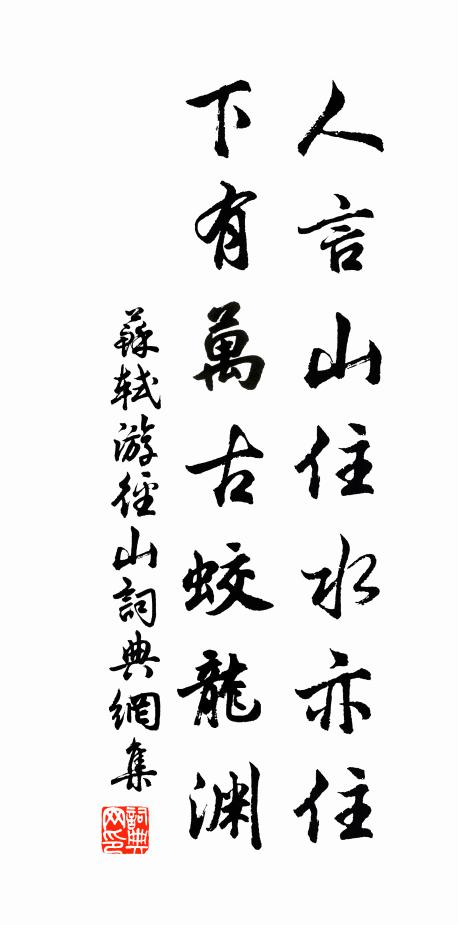 人言山住水亦住
下有萬古蛟龍淵
蘇軾游徑山詞典網集
詞典网印